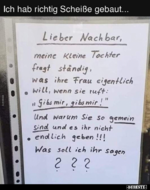 Ich hab richtig Scheiße gebaut...
Lieber Nachbar,
meine kleine Tochter
fragt ständig,
was ihre Frau eigentlich
will, wenn sie ruft:
"Gibs mir, gibs mir!"
Und warum Sie so gemein
sind und es ihr nicht
endlich geben!!!
Was soll ich ihr sagen
???